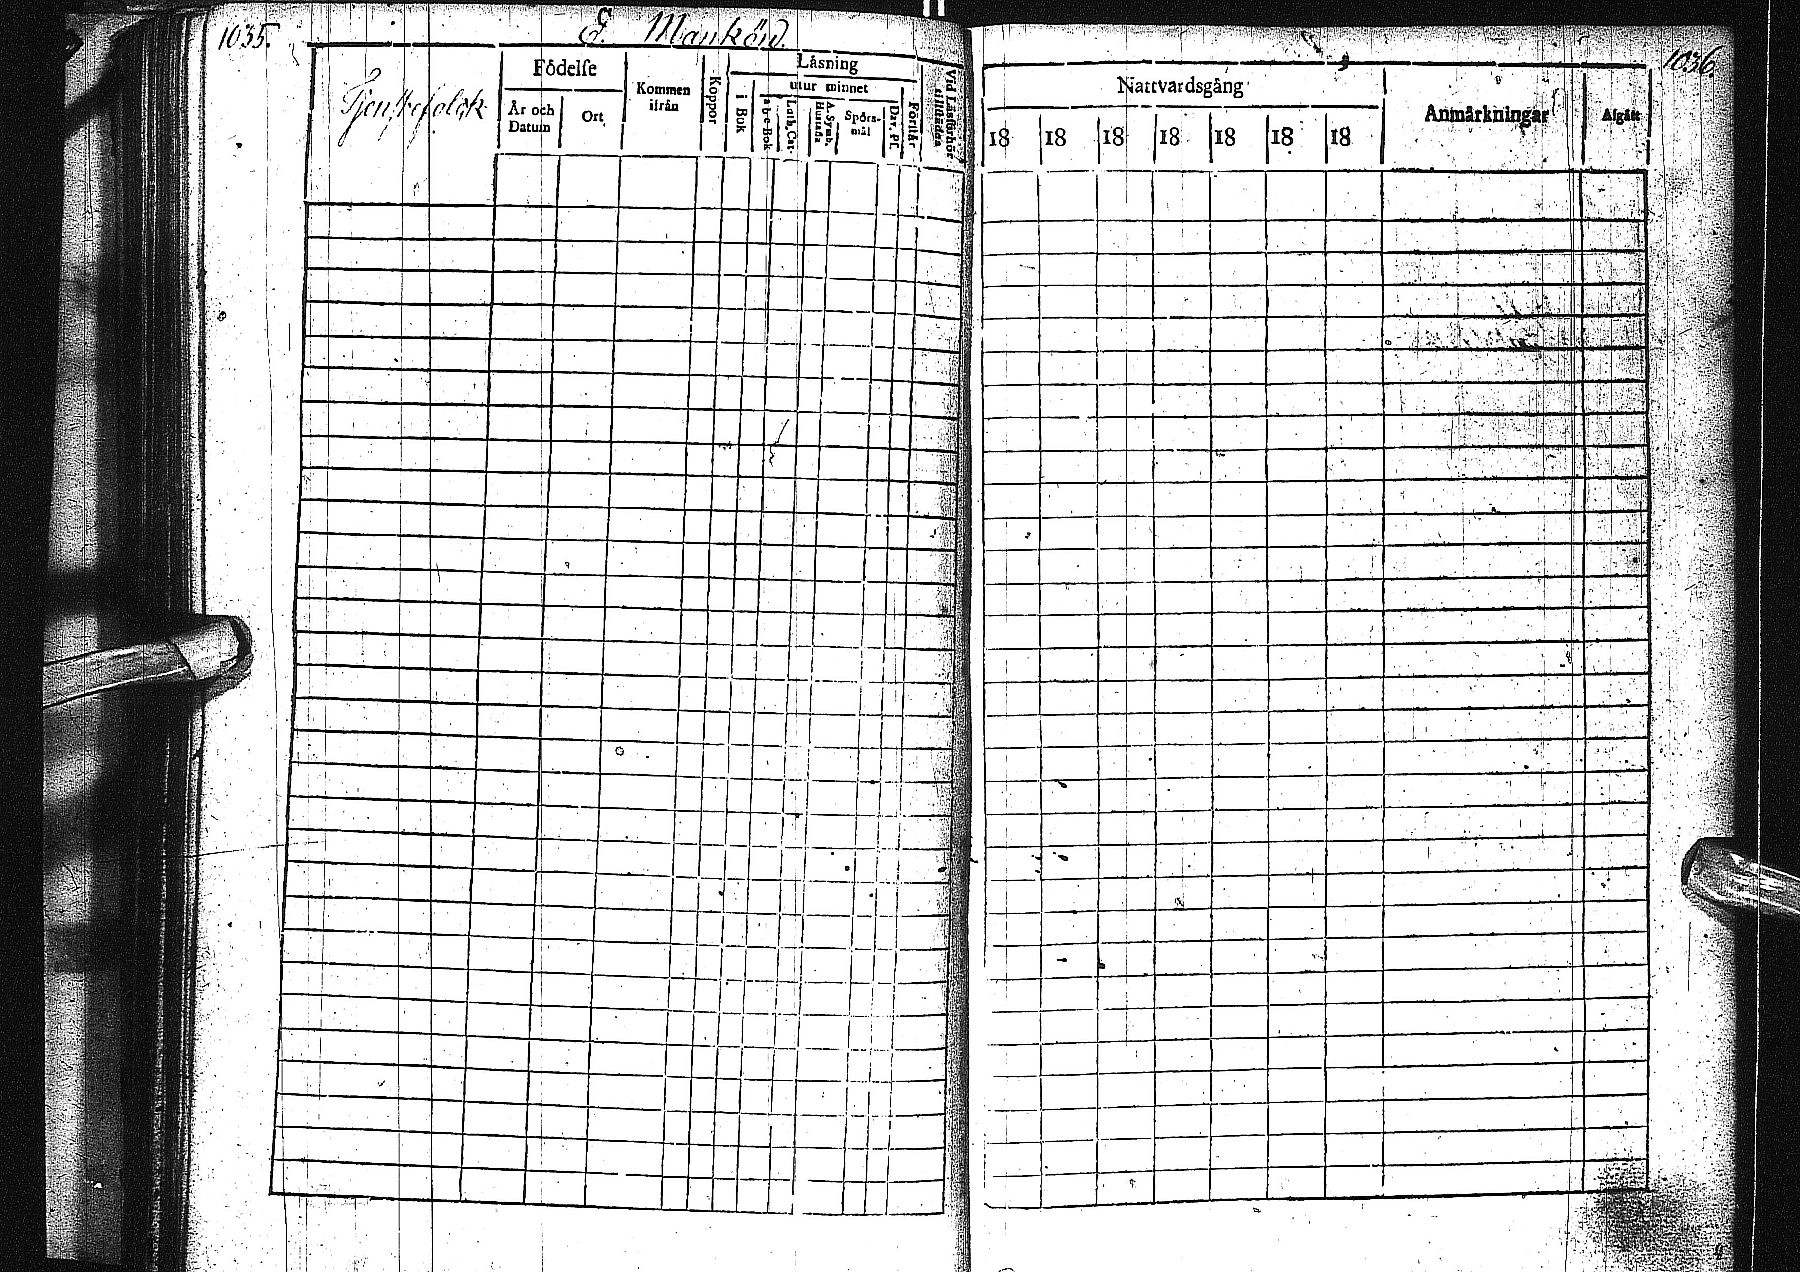 1035.
E. Mankön.
Tjenstefolck
Födelse
År och Datum
Ort
Kommen ifrån
Koppor
Läsning
i Bok
utur minnet
a-b-c-Bok
Luth. Cat.
A. Symb. Hustafla
Spörsmål
Dav. Ps.
Förstår
Vid Läsförhör tillstädes
1036.
Nattvardsgång
18 18 18 18 18 18 18
Anmärkningar
Afgått